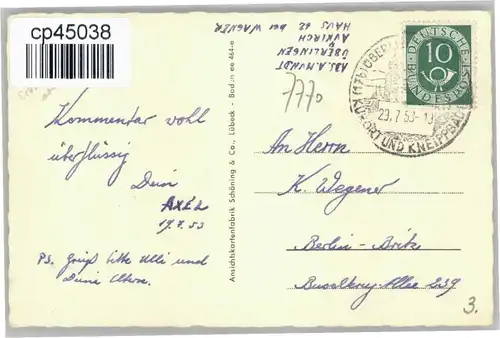 cp45038
ABS. A. MUNDT
ÜBERLINGEN
AUFKIRCH
HAUS 12 bei WAGNER
7770
DEUTSCHE
BUNDESPOST
10
(17b) ÜBERLINGEN
23.7.53-18
KURORT UND KNEIPPBAD
Kommentar wohl
überflüssig
Dein
AXEL
19.7.53
PS. Grüß bitte Ulli und
Deine Eltern.
Ansichtskartenfabrik Schöning & Co., Lübeck - Bodensee 464-e
An Herrn
K. Wegener
Berlin-Britz
Buschkrug-Allee 239
3.